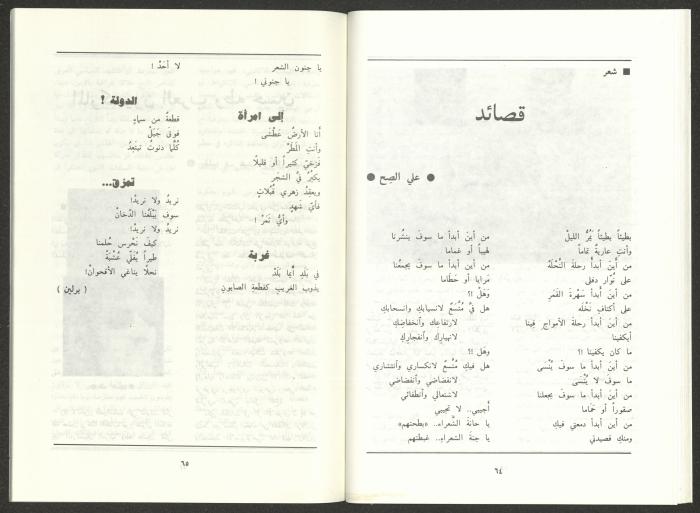 ■ شعر
قصائد
● علي الصح ●
بطيئاً بطيئاً يَمُرُّ الليلْ
وأنتِ عاريةٌ تماماً
من أينَ أبدأُ رحلةَ النُّحْلَهْ
على نُوّار دفلى
من أينَ أبدأُ سَهْرةَ القَمَر
على أكتافِ نَخْلَه
من أينَ أبدأ رحلةَ الأمواجِ فِينا
أيكفينا
ما كان يكفينا !؟
من أينَ أبدأ ما سوفَ يُنْسَى
ما سوفَ لا يُنْسَى
من أين أبدأ ما سوفَ يجعلنا
صقوراً أو حَماما
من أين أبدأ دمعتي فيكِ
ومنكِ قصيدتي
من أينَ أبدأ ما سوفَ ينشُرنا
لهيباً أو غماما
من أينَ أبدأ ما سوفَ يجمعُنا
مَرايا أو حطَاما
وهَلْ !؟
هل فيَّ مُتَّسَعٌ لانسيابكِ وانسحابكِ
لارتفاعِكِ وانخفاضِكِ
لانهياركِ وانفجاركِ
وهل !؟
هل فيكِ مُتَّسعٌ لانكساري وانتشاري
لانقضاضي وانفضاضي
لاشتعالي وانطفائي
أجيبي.. لا تجيبي
يا حانةَ الشُّعراء.. «بطحتهم»
يا جنةَ الشعراء.. غبطتهم
٦٤
يا جنون الشعر
يا جنوني !
إلى امرأة
أنا الأرضُ عَطْشَى
وأنتِ المَطَرْ
فَزخّي كثيراً أو قليلاً
يكبُرُ فيَّ الشجَر
ويعقِدُ زهري قُبُلاتٍ
فأيّ شَهدٍ
وأيُّ ثَمَرْ !
غربة
في بَلَدٍ أيما بَلَدْ
يذوب الغريب كقطعةِ الصابونِ
لا أحَدُ !
الدولة !
قطعةٌ من سماءٍ
فوقَ جَبَلْ
كُلَّما دنوتُ تبتَعِدُ
تمزق...
نريدُ ولا نريدُ!
سوف يَبْلَعُنا الدُّخَانْ
نريدُ ولا نريدُ!
كيفَ نَحْرس حُلمنا
طيراً يُغَنّي عُشْبَةً
نحلاً يناغي الأقحوانْ!
( برلين )
٦٥